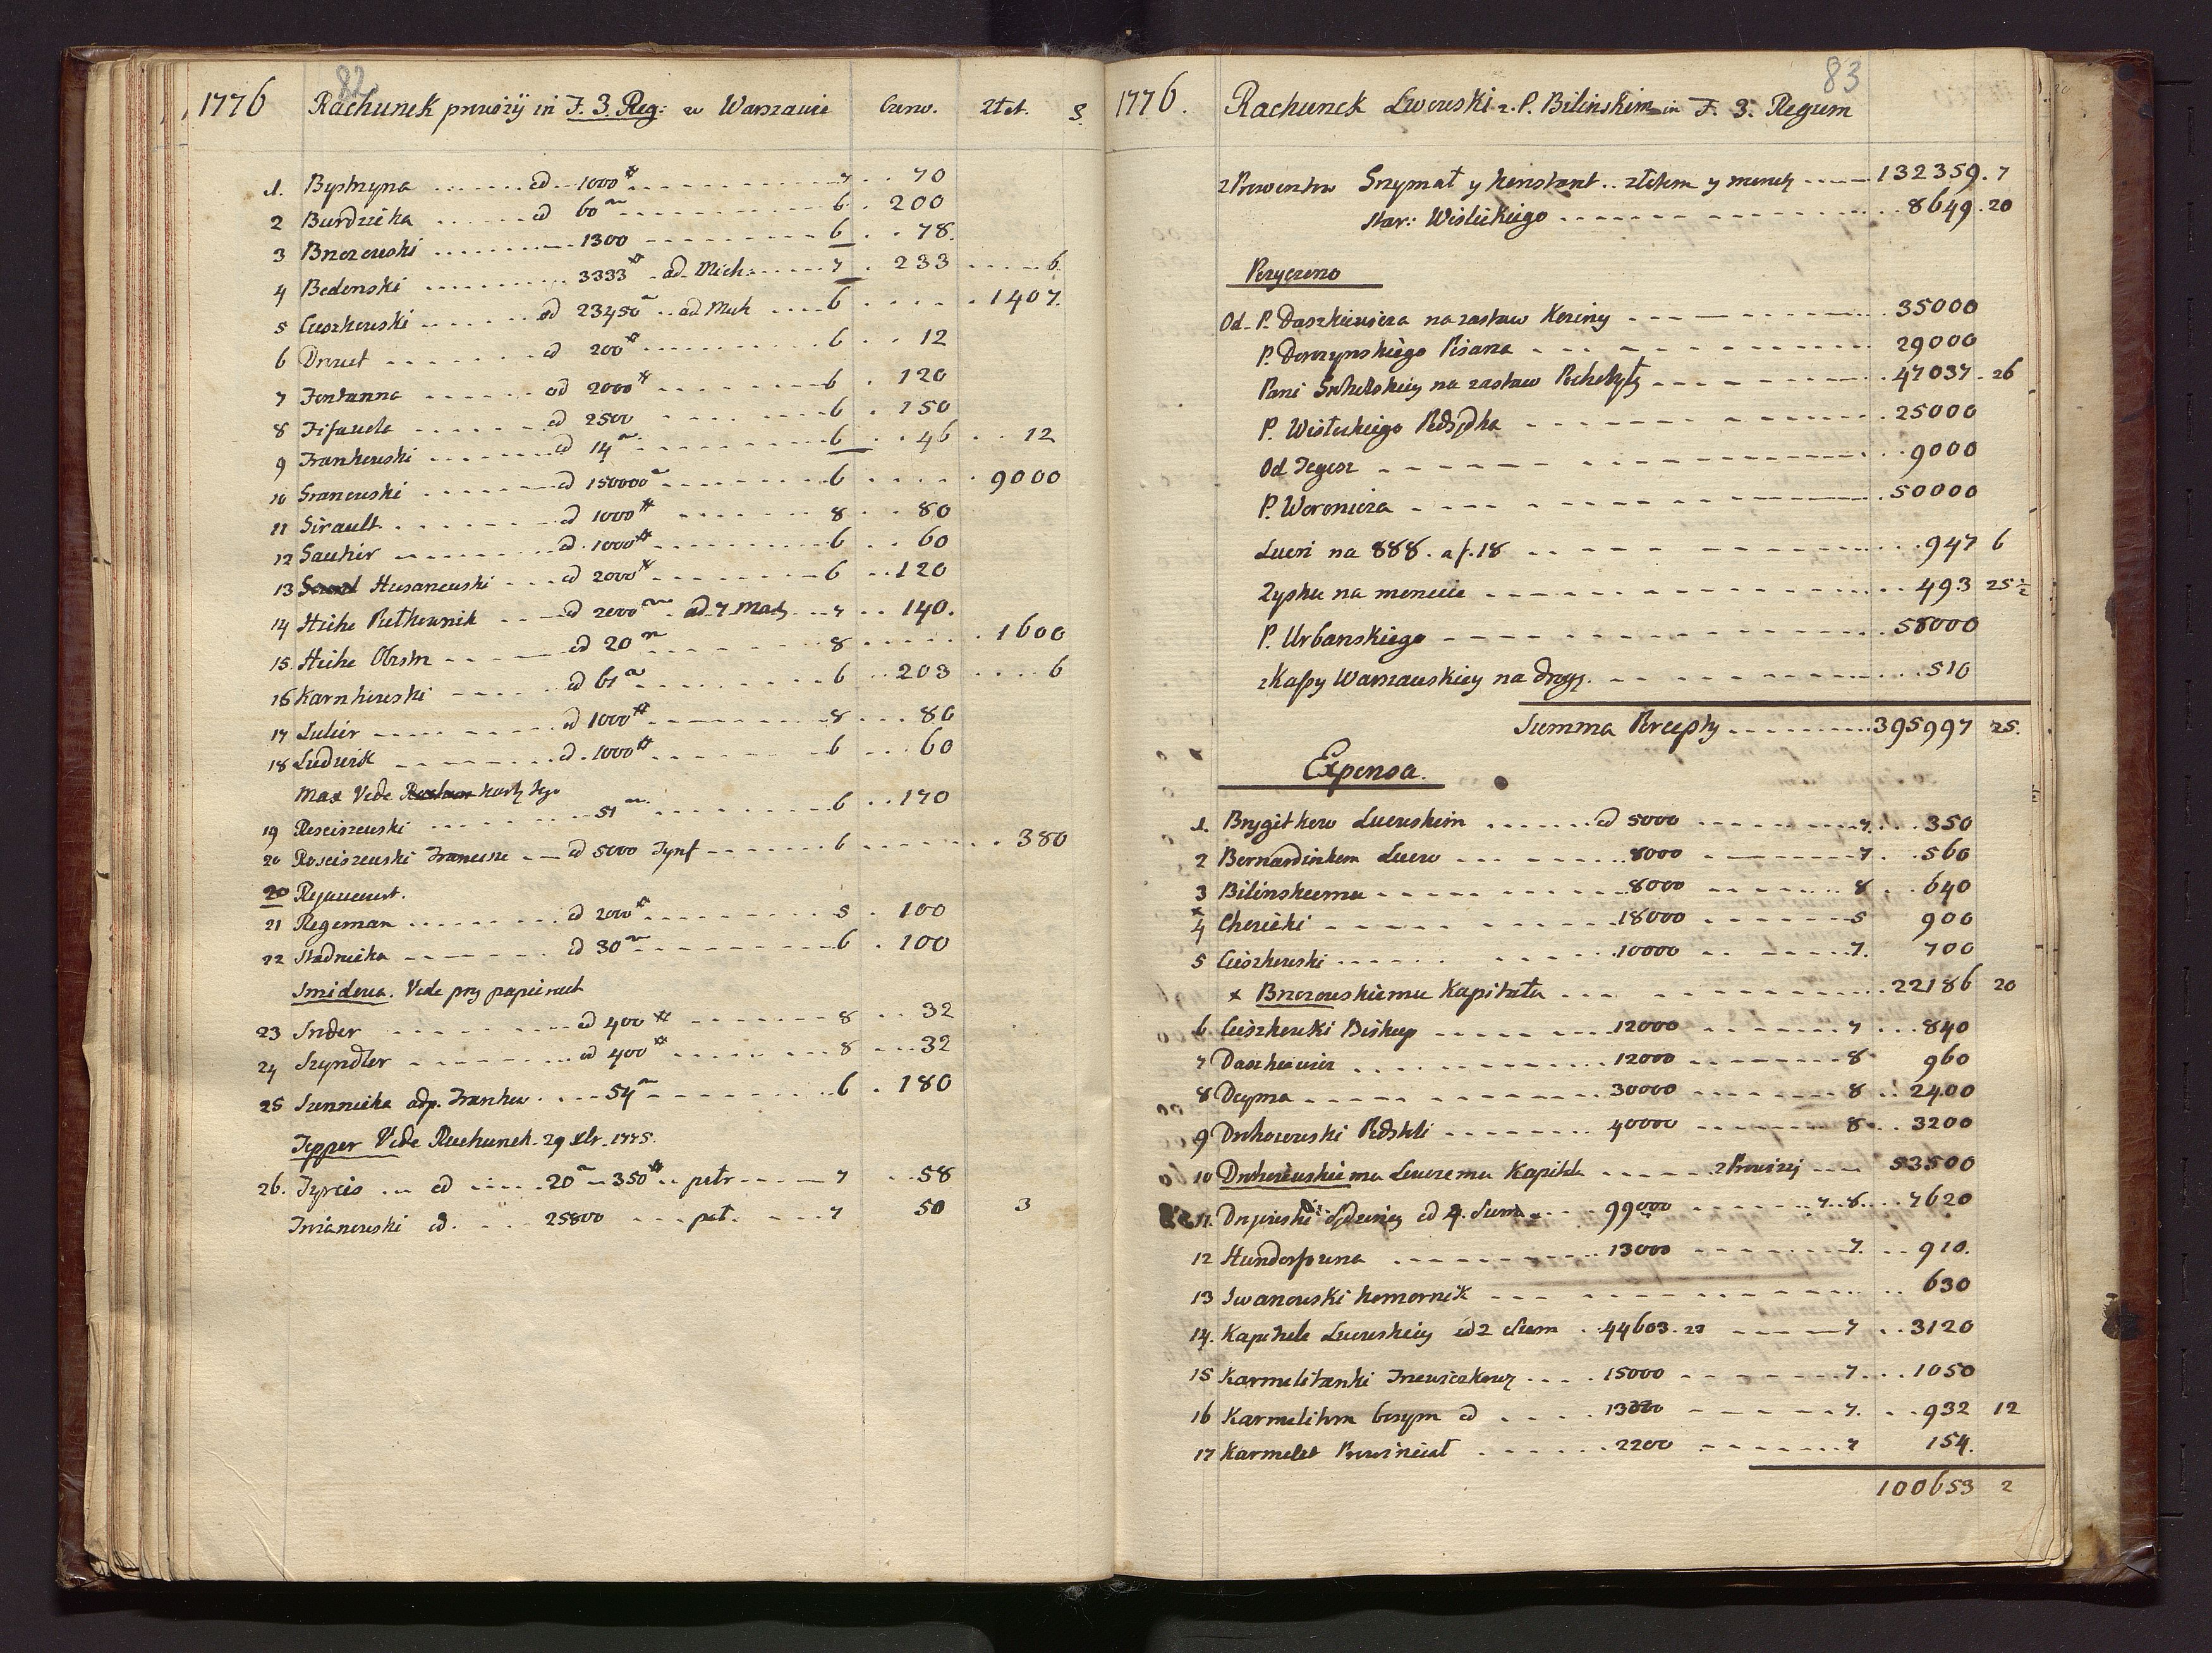 82
1776 Rachunek prowizij in F. 3. Reg: w Warszawie Czerw. Złot. g.
1. Bystrzyna od 1000# 7 70
2 Burdzicka od 60m 6 200
3 Brzozowski 1300 6 78.
4 Bedonski 3333# ad Mich: 7 233 6
5 Cieszkowski od 23450 ad Mich 6 1407.
6 Drzwt od 200# 6 12
7 Fontanna od 2000# 6 120
8 od 2500 6 150
9 Frankowski od 14m 6 46 12
10 Granowski od 150000 6 9000
11 Girault od 1000# 8 80
12 Gautier od 1000# 6 60
13 Husarzewski od 2000# 6 120
14 Hicke Pułkownik od 2000 ad 7 Maij 7 140.
15. Hicke Obrstn od 20m 8 1600
16 Karnkowski od 61m 6 203 6
17 Lulier od 1000# 8 80
18 Ludwik od 1000# 6 60
Max Vide
19 Rosciszewski 51m 6 170
20 Rosciszewski Francisz od 5000 Tynf 6 380
20
21 Regeman od 2000# 5 100
22 Stadnicka od 30m 6 100
Vide przy papierach
23 Snider od 400# 8 32
24 Szyndler od 400# 8 32
25 Szennicka adp. Frankow 54m 6 180
Tepper Vide Rachunek 29 Xbr. 1775.
26. Tyrcis od 20m 350# petr 7 58
od 25800 pet. 7 50 3
83
1776. Rachunek Lwowski z P. Bilinskim in F. 3. Regum
z Prowentow Szymat y Konstant. złotem y monetą 132359. 7
Star: Wislickiego 8649. 20
Pozyczono
Od P. Daszkiewicza na zastaw Koziny 35000
P. Dorczynskiego Pisarza 29000
Pani na zastaw 47037. 26
P. Wisłockiego Podsędka 25000
Od Tegosz 9000
P. Woronicza 50000
Lucri na 888. a f. 18 947 6
Zysku na monecie 493 25½
P. Urbanskiego 58000
z Kassy Warszawskiey na 510
Summa Percepty 395997 25.
Expensa.
1. Brygitkow Lwowskim od 5000 7 350
2 Bernardinkom Lwow 8000 7. 560
3 Bilinskiemu 8000 8 640
x
4 Choiecki 18000 5 900
5 Cieszkowski 10000 7. 700
x Brzozowskiemu Kapitału 22186 20
6 Cieszkowski Biskup 12000 7 840
7 Daszkiewicz 12000 8 960
8 Deyma 30000 8 2400
9 Drohoiowski Podstoli 40000 8 3200
10 Drohoiowskiemu Kapitału z Prowizij 53500
11. Drzewieski od 4. Sum 99000 7. 8. 7620
12 13000 7. 910.
13 Iwanowski komornik 630
14. Kapitule Lwowskiey od 2 Sum 44603. 23 7 3120
15 Karmelitanki Trzewiczkowe 15000 7. 1050
16 Karmelitom bosym od 13320 7. 932 12
17 Karmelit Prowincial 2200 7 154.
100653 2